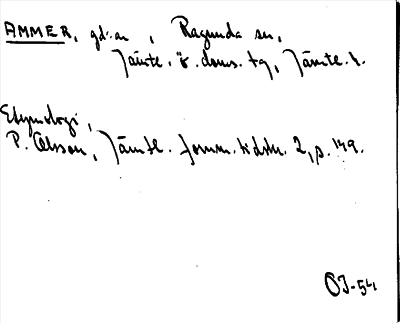 AMMER, gd:an, Ragunda sn,
Jämtl. ö. doms. tg, Jämtl. l.
Etymologi,
P. Olsson, Jämtl. fornm. tidskr. 2, p. 149.
OJ-54